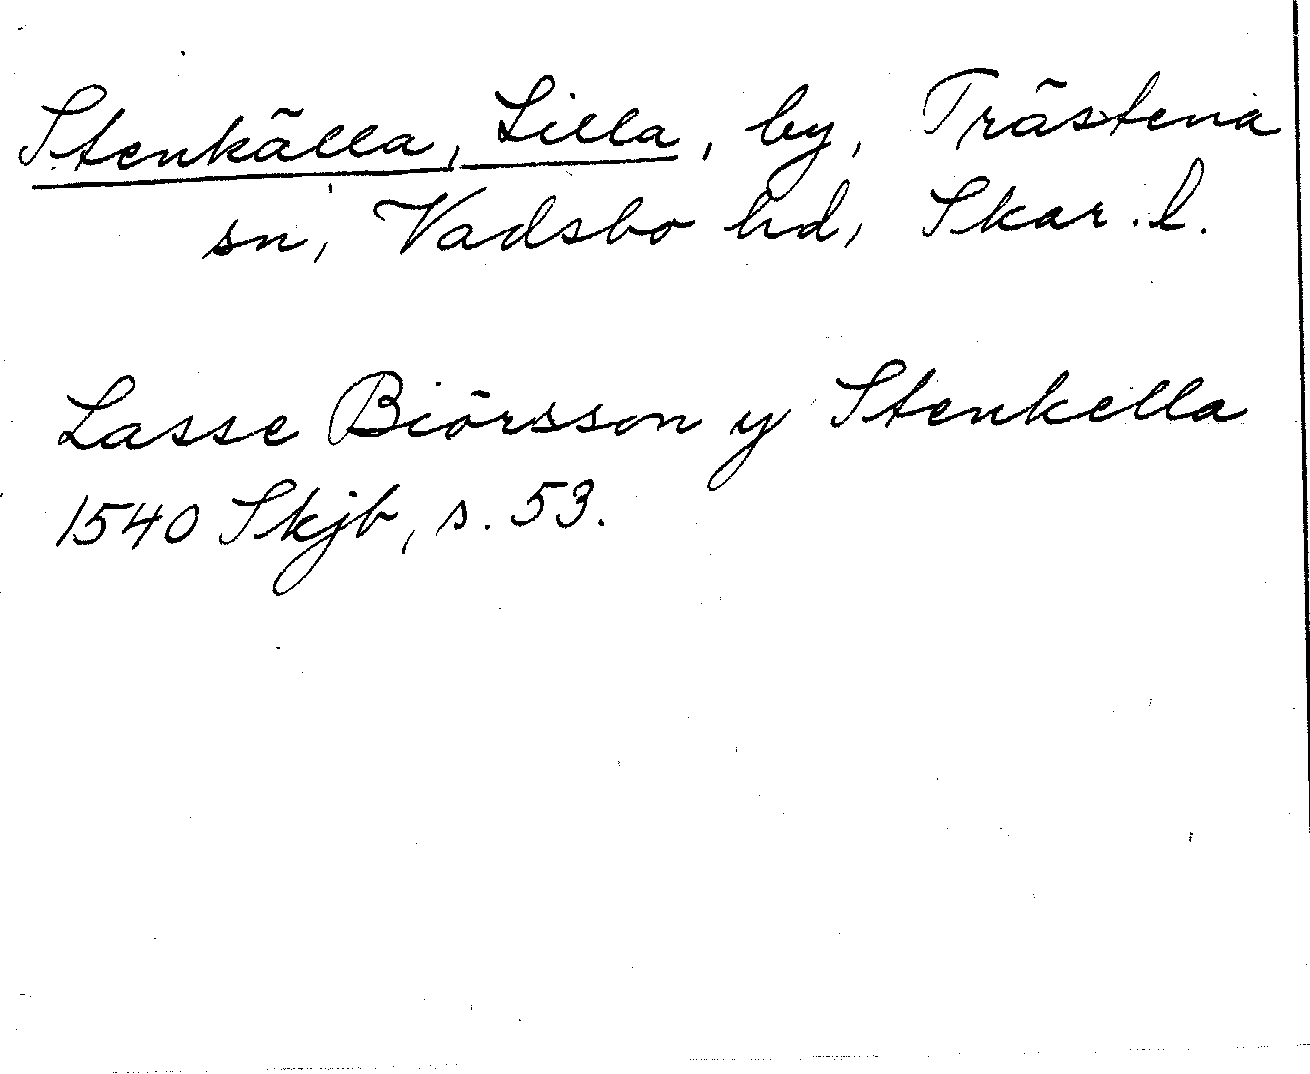 Stenkälla, Lilla, by, Trästena
sn, Vadsbo hd, Skar. l.
Lasse Biörsson y Stenkella
1540 Skjb, s. 53.